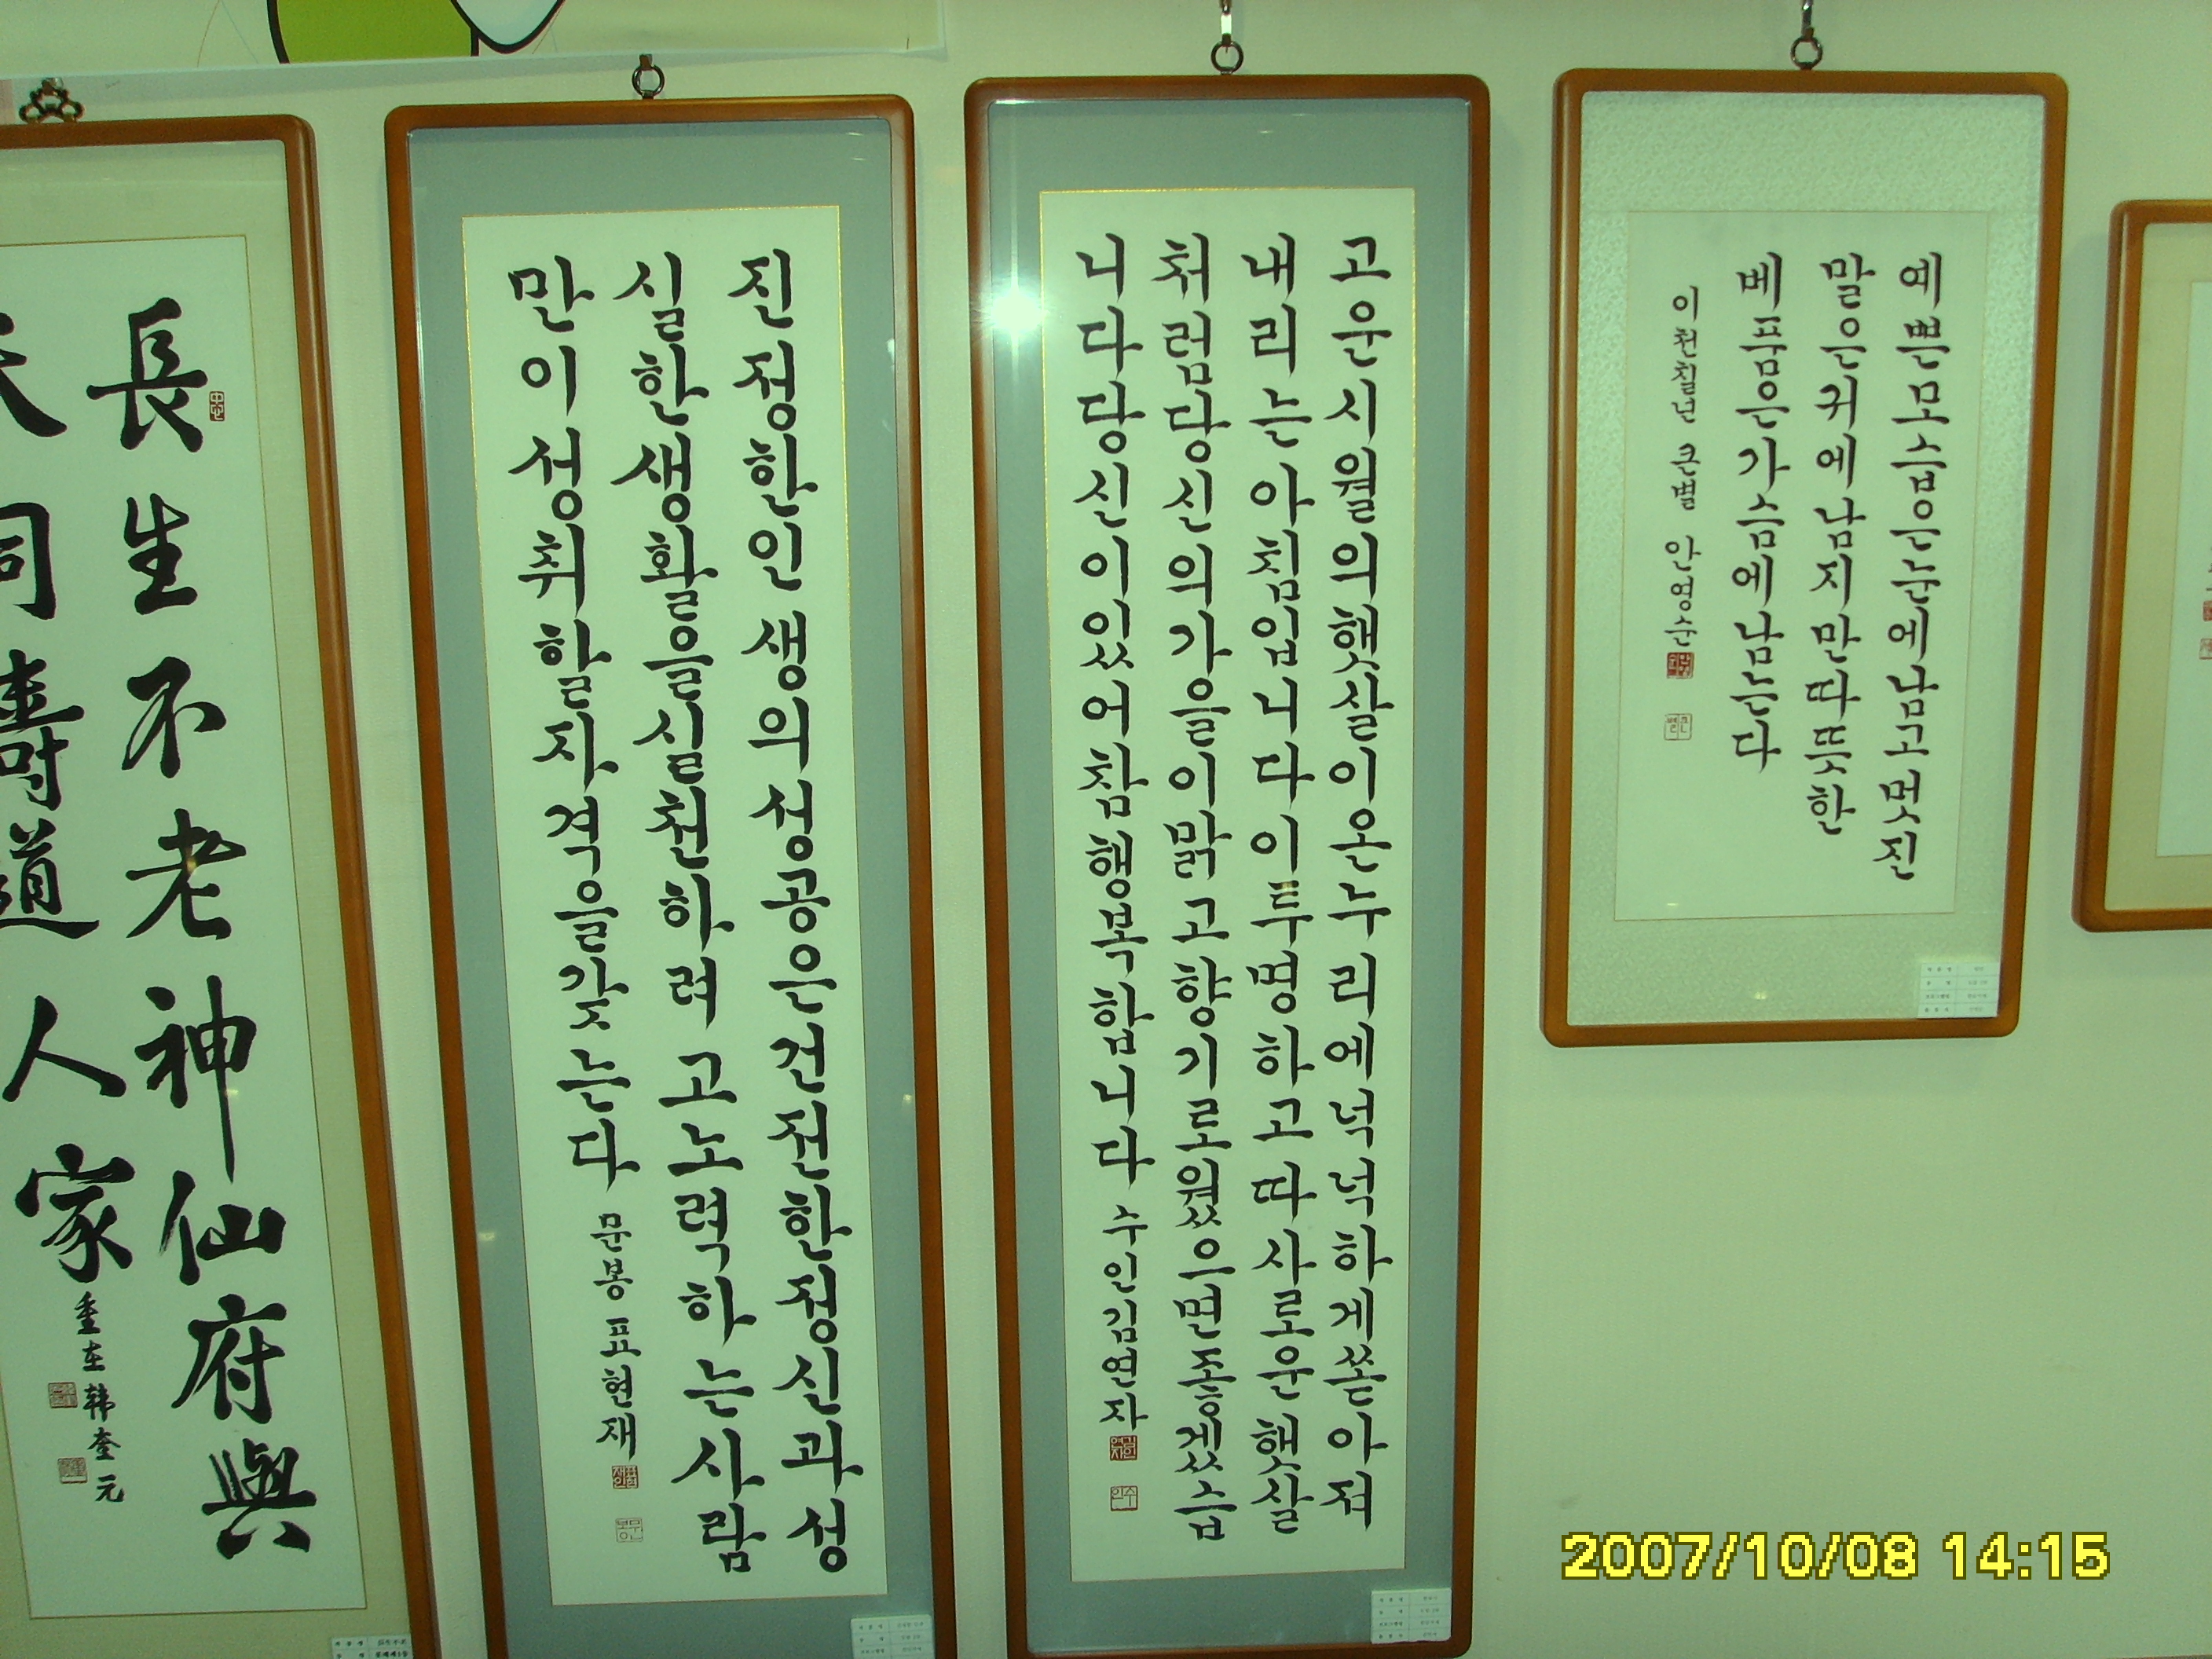 長生不老神仙府與
天同壽道人家
重在 韩奎元
진정한인생의성공은건전한정신과성
실한생활을실천하려고노력하는사람
만이성취할자격을갖는다 문봉 표현재
고운시월의햇살이온누리에넉넉하게쏟아져
내리는아침입니다이투명하고따사로운햇살
처럼당신의가을이맑고향기로웠으면좋겠습
니다당신이있어참행복합니다 수인김연자
예쁜모습은눈에남고멋진
말은귀에남지만따뜻한
베품은가슴에남는다
이천칠년 큰별 안영순
2007/10/08 14:15